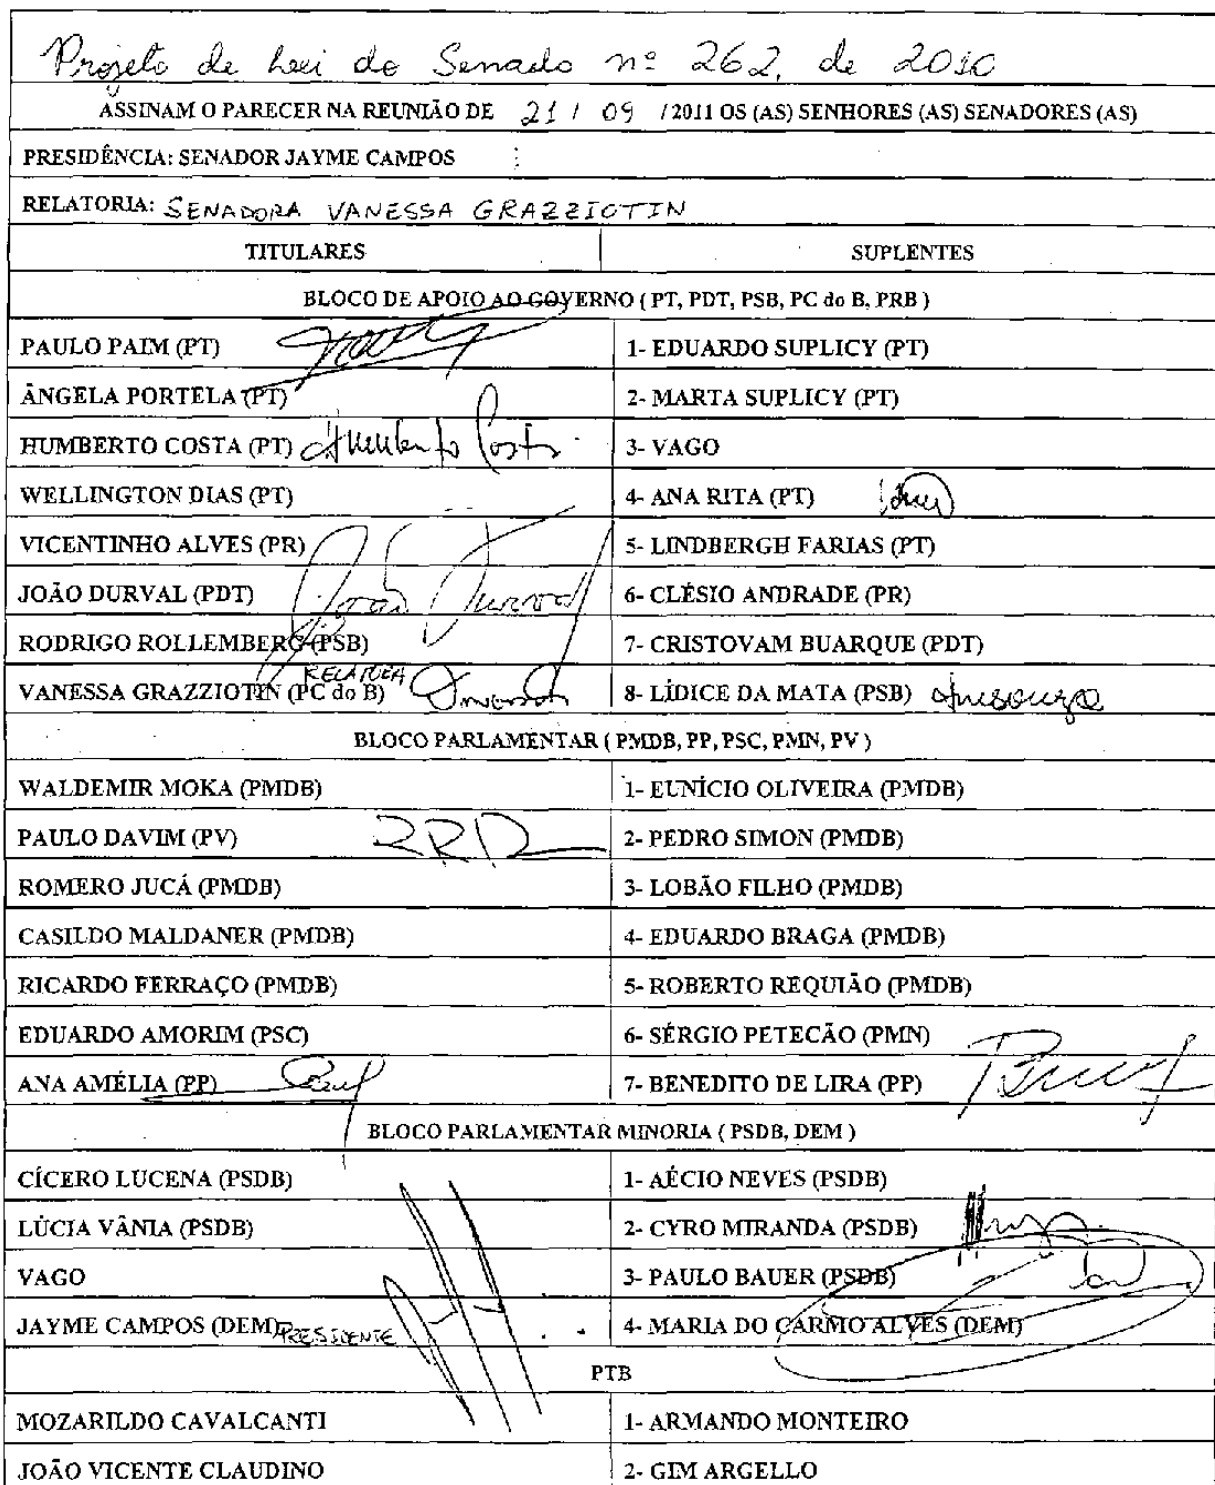 Projeto de Lei do Senado nº 262, de 2010
ASSINAM O PARECER NA REUNIÃO DE 21 / 09 / 2011 OS (AS) SENHORES (AS) SENADORES (AS)
PRESIDÊNCIA: SENADOR JAYME CAMPOS
RELATORIA: SENADORA VANESSA GRAZZIOTIN
TITULARES SUPLENTES
BLOCO DE APOIO AO GOVERNO ( PT, PDT, PSB, PC do B, PRB )
PAULO PAIM (PT) 1- EDUARDO SUPLICY (PT)
ÂNGELA PORTELA (PT) 2- MARTA SUPLICY (PT)
HUMBERTO COSTA (PT) Humberto Costa 3- VAGO
WELLINGTON DIAS (PT) 4- ANA RITA (PT)
VICENTINHO ALVES (PR) 5- LINDBERGH FARIAS (PT)
JOÃO DURVAL (PDT) João Durval 6- CLÉSIO ANDRADE (PR)
RODRIGO ROLLEMBERG (PSB) 7- CRISTOVAM BUARQUE (PDT)
VANESSA GRAZZIOTIN (PC do B) RELATORA 8- LÍDICE DA MATA (PSB)
BLOCO PARLAMENTAR ( PMDB, PP, PSC, PMN, PV )
WALDEMIR MOKA (PMDB) 1- EUNÍCIO OLIVEIRA (PMDB)
PAULO DAVIM (PV) 2- PEDRO SIMON (PMDB)
ROMERO JUCÁ (PMDB) 3- LOBÃO FILHO (PMDB)
CASILDO MALDANER (PMDB) 4- EDUARDO BRAGA (PMDB)
RICARDO FERRAÇO (PMDB) 5- ROBERTO REQUIÃO (PMDB)
EDUARDO AMORIM (PSC) 6- SÉRGIO PETECÃO (PMN)
ANA AMÉLIA (PP) 7- BENEDITO DE LIRA (PP)
BLOCO PARLAMENTAR MINORIA ( PSDB, DEM )
CÍCERO LUCENA (PSDB) 1- AÉCIO NEVES (PSDB)
LÚCIA VÂNIA (PSDB) 2- CYRO MIRANDA (PSDB)
VAGO 3- PAULO BAUER (PSDB)
JAYME CAMPOS (DEM) PRESIDENTE 4- MARIA DO CARMO ALVES (DEM)
PTB
MOZARILDO CAVALCANTI 1- ARMANDO MONTEIRO
JOÃO VICENTE CLAUDINO 2- GIM ARGELLO